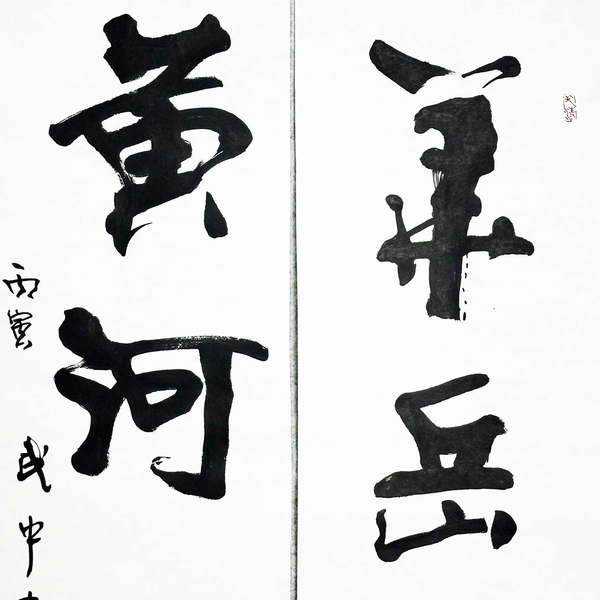 華岳
黄河
丙寅 武中